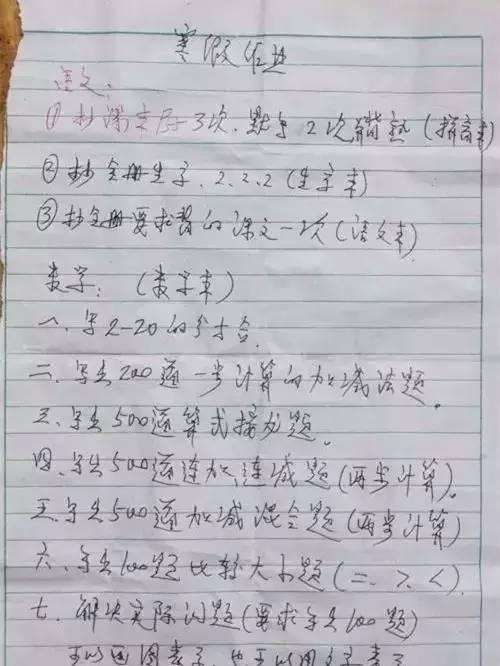 寒假作业
语文:
①抄满案后3次.默写2次背熟(拼音本)
②抄全册生字.2.2.2(生字本)
③抄全册要求背的课文一次(语文本)
数学:(数学本)
一、写2-20的分合.
二、写出200道一步计算的加减法题。
三、写出500道算式接龙题。
四、写出500道连加、连减题(两步计算)。
五、写出500道加减混合题(两步计算)
六、写出100题比较大小题(=、>、<)
七、解决实际问题(要求写出100题)
可以画图表示,也可以用文字表示